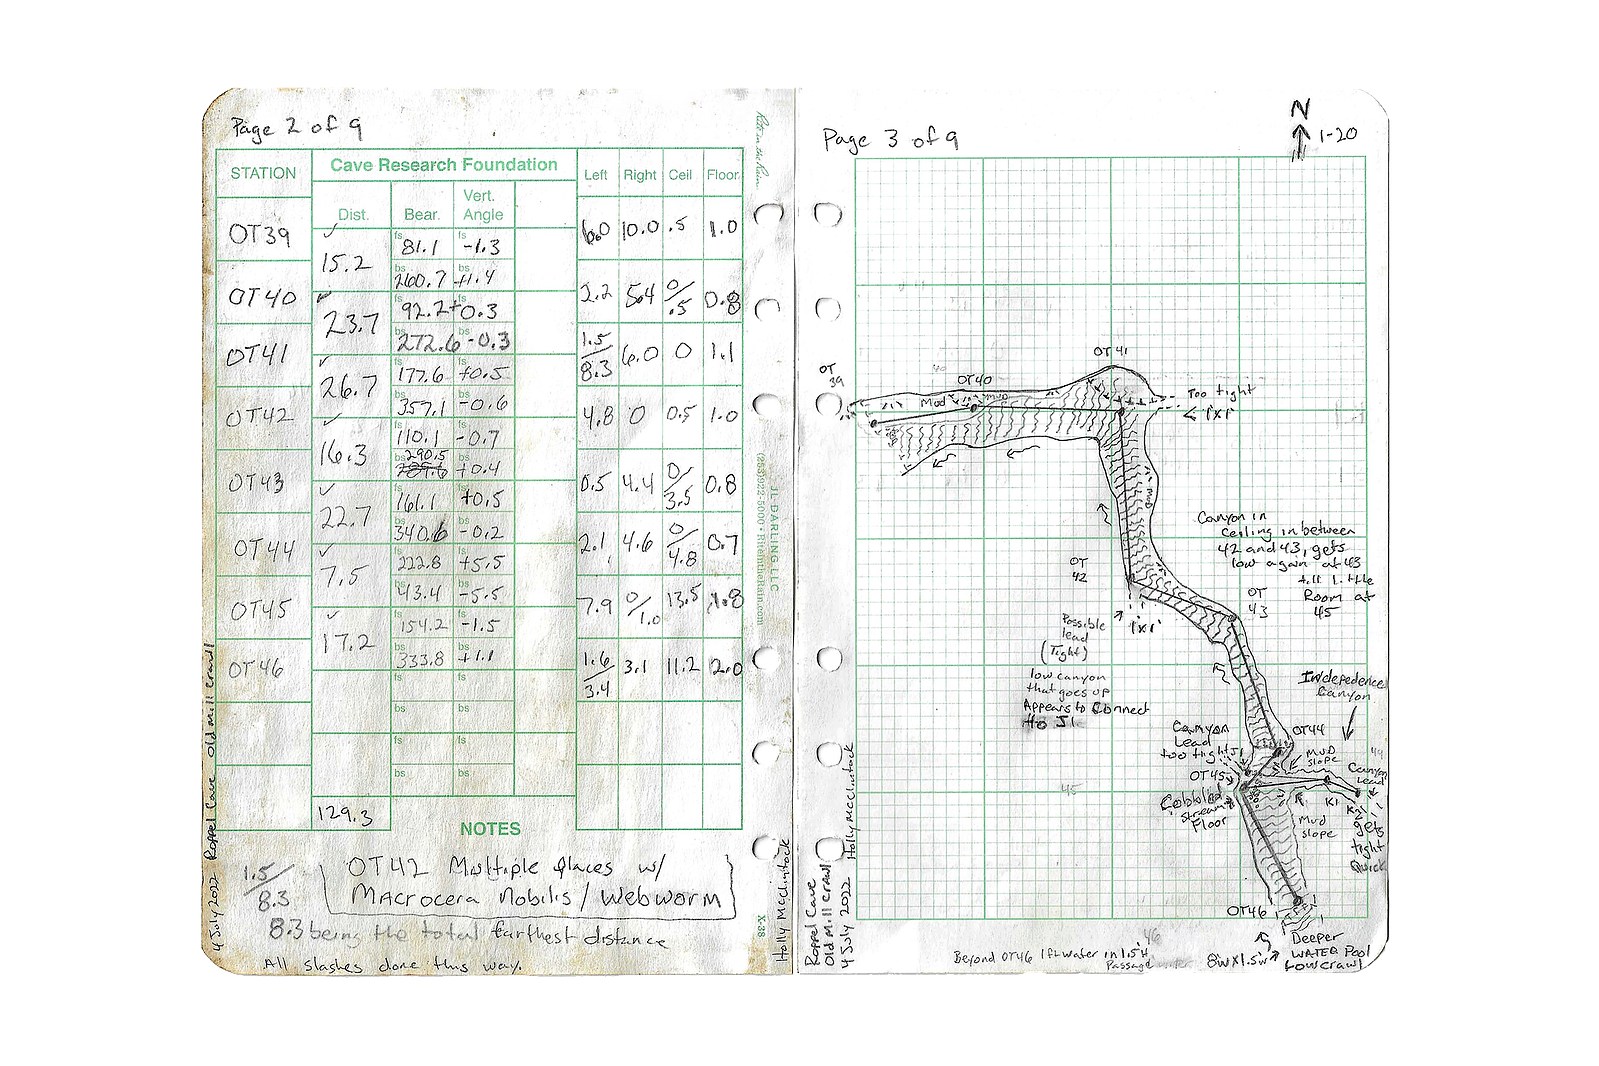 Page 2 of 9
STATION
Cave Research Foundation
Left Right Ceil Floor
Dist. Bear. Vert. Angle
OT39 6.0 10.0 .5 1.0
✓ 15.2 fs 81.1 fs -1.3
bs 260.7 bs +1.4
OT40 2.2 5.4 0/.5 0.8
✓ 23.7 fs 92.2 fs +0.3
bs 272.6 bs -0.3
OT41 1.5/8.3 6.0 0 1.1
✓ 26.7 fs 177.6 fs +0.5
bs 357.1 bs -0.6
OT42 4.8 0 0.5 1.0
✓ 16.3 fs 110.1 fs -0.7
bs 290.5 bs +0.4
OT43 0.5 4.4 0/3.5 0.8
✓ 22.7 fs 161.1 fs +0.5
bs 340.6 bs -0.2
OT44 2.1 4.6 0/4.8 0.7
✓ 7.5 fs 222.8 fs +5.5
bs 43.4 bs -5.5
OT45 7.9 0/1.0 13.5 1.8
✓ 17.2 fs 154.2 fs -1.5
bs 333.8 bs +1.1
OT46 1.6/3.4 3.1 11.2 2.0
fs fs
bs bs
fs fs
bs bs
129.3
NOTES
1.5/8.3
OT42 Multiple places w/
Macrocera Nobilis / Webworm
8.3 being the total farthest distance
All slashes done this way.
4 July 2022 Roppel Cave Old Mill Crawl
Holly McClintock
Rite in the Rain
JL DARLING LLC
(253)922-5000 • RiteintheRain.com
X-38
Page 3 of 9
N
1-20
OT
39
OT40
OT41
Mud
Too tight
← 1'x1'
Mud
OT
42
Canyon in
Ceiling in between
42 and 43, gets
low again at 43
till little
Room at
45
OT
43
1'x1'
Possible
lead
(Tight)
low canyon
that goes up
Appears to Connect
to J1
Indepedence
Canyon
Canyon
Lead
too tight
J1
OT44
Mud
slope
44
Canyon
Lead
OT45
45
Cobbled
Stream
Floor
K1
K2
Mud
slope
gets
tight
Quick
OT46
46
Deeper
WATER Pool
Low crawl
8'w x 1.5'H
Beyond OT46 1ft water in 1.5'H
Passage
Roppel Cave
Old Mill Crawl
4 July 2022 Holly McClintock